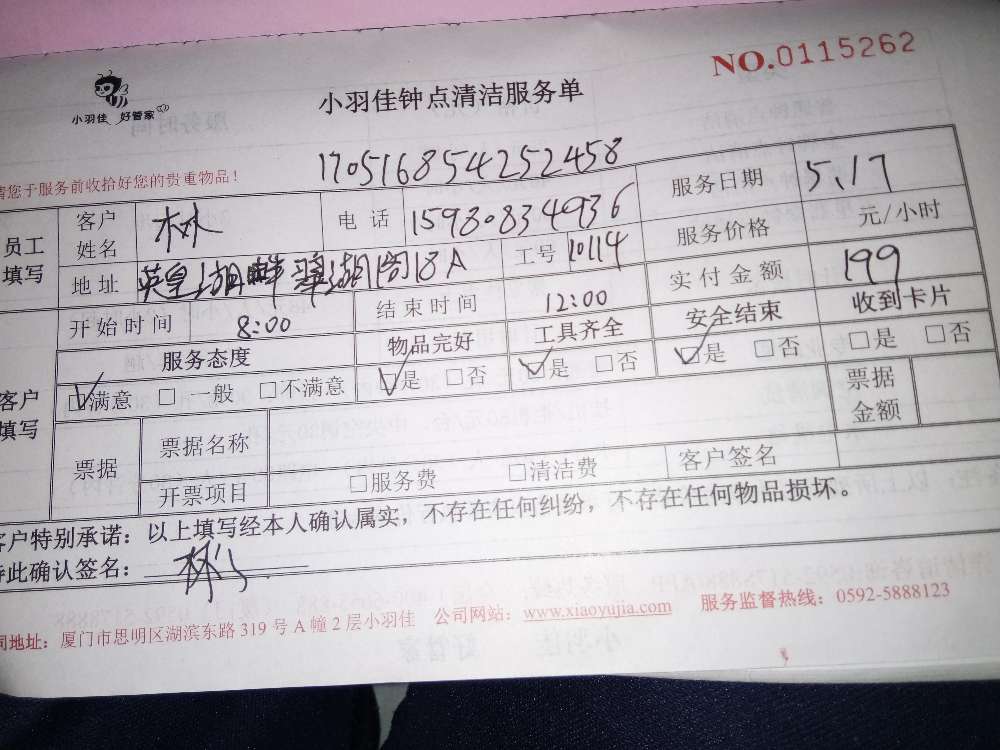 NO.0115262
小羽佳 好管家
小羽佳钟点清洁服务单
170516854252458
请您于服务前收拾好您的贵重物品!
员工填写 客户姓名 林 电话 15980834936 服务日期 5.17
地址 英皇湖畔翠湖阁18A 工号 10114 服务价格 元/小时
开始时间 8:00 结束时间 12:00 实付金额 199
客户填写 服务态度 物品完好 工具齐全 安全结束 收到卡片
☑满意 □一般 □不满意 ☑是 □否 ☑是 □否 ☑是 □否 □是 □否
票据 票据名称 票据金额
开票项目 □服务费 □清洁费 客户签名
客户特别承诺:以上填写经本人确认属实,不存在任何纠纷,不存在任何物品损坏。
特此确认签名:林
公司地址:厦门市思明区湖滨东路319号A幢2层小羽佳 公司网站:www.xiaoyujia.com 服务监督热线:0592-5888123